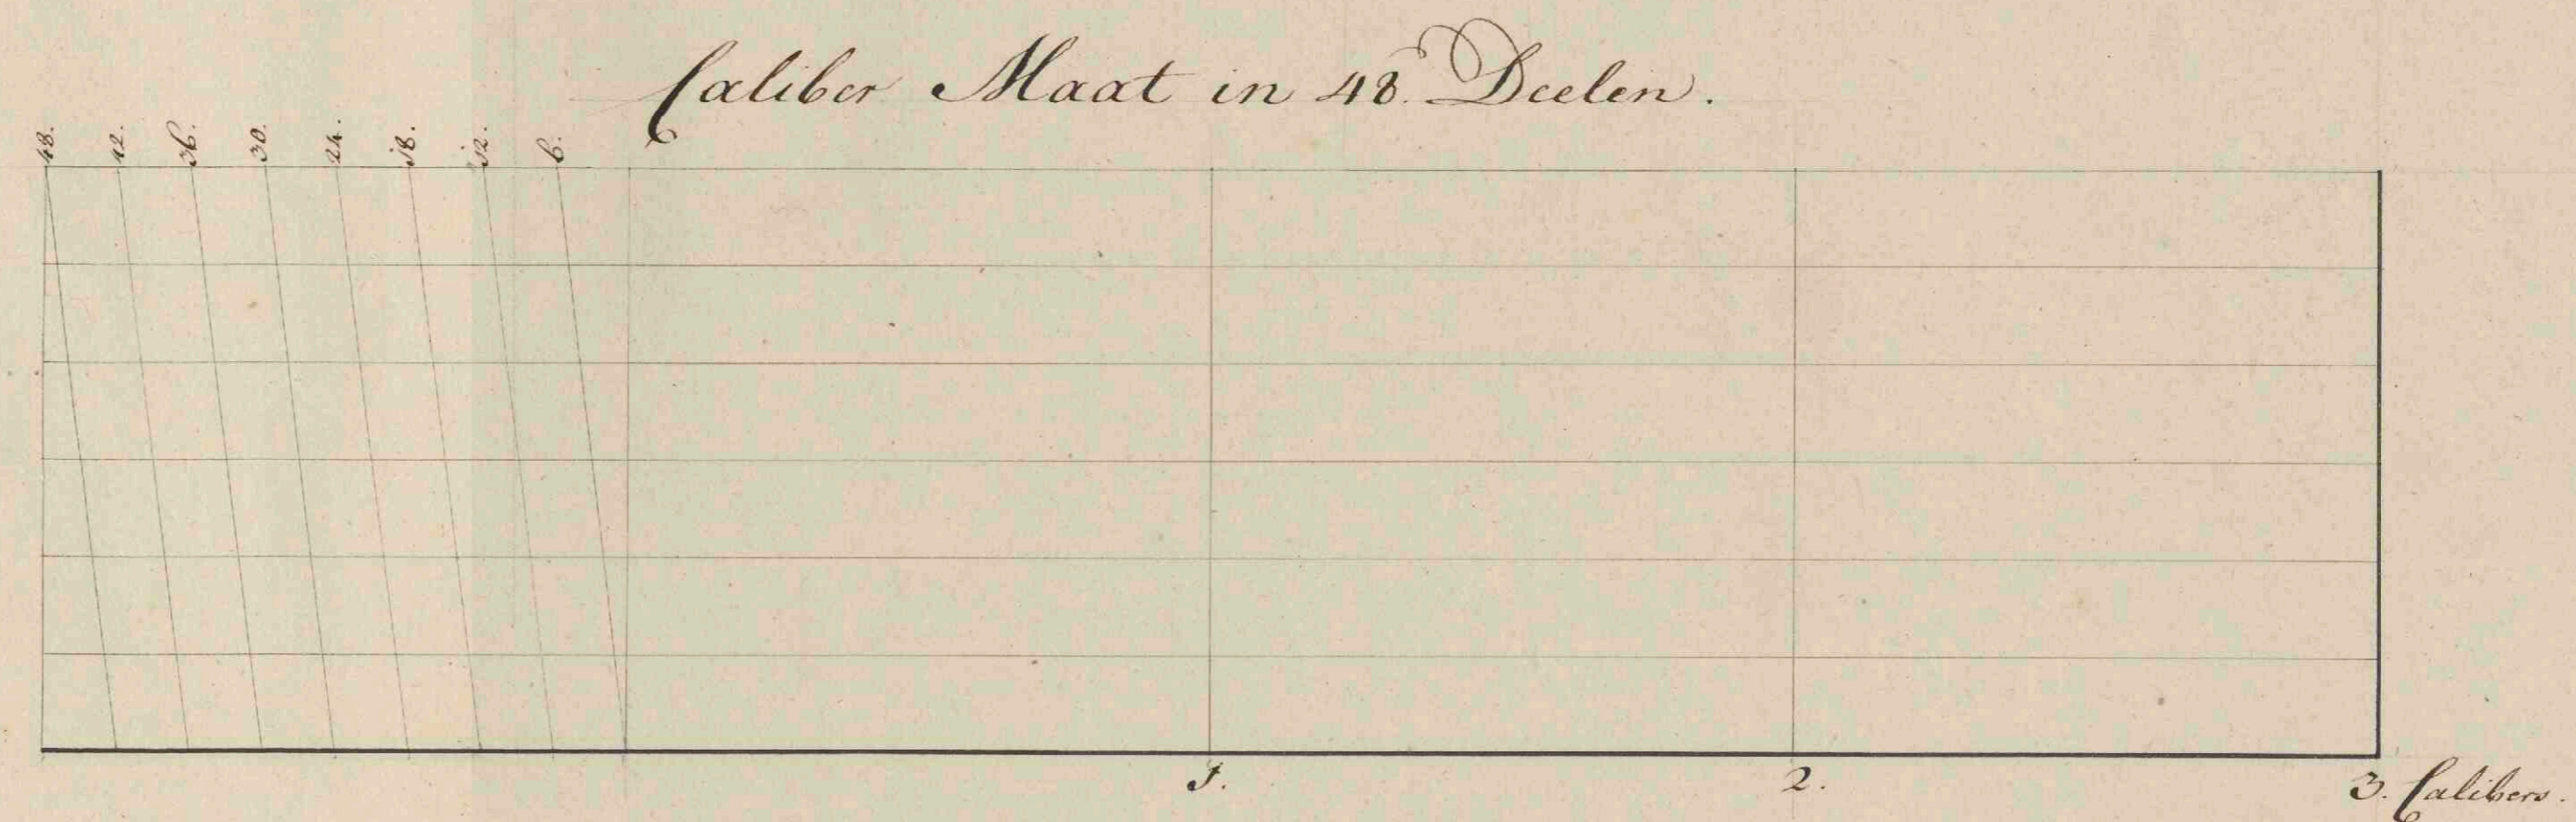 Caliber Maat in 48. Deelen.
48. 42. 36. 30. 24. 18. 12. 6.
1. 2. 3. Calibers.